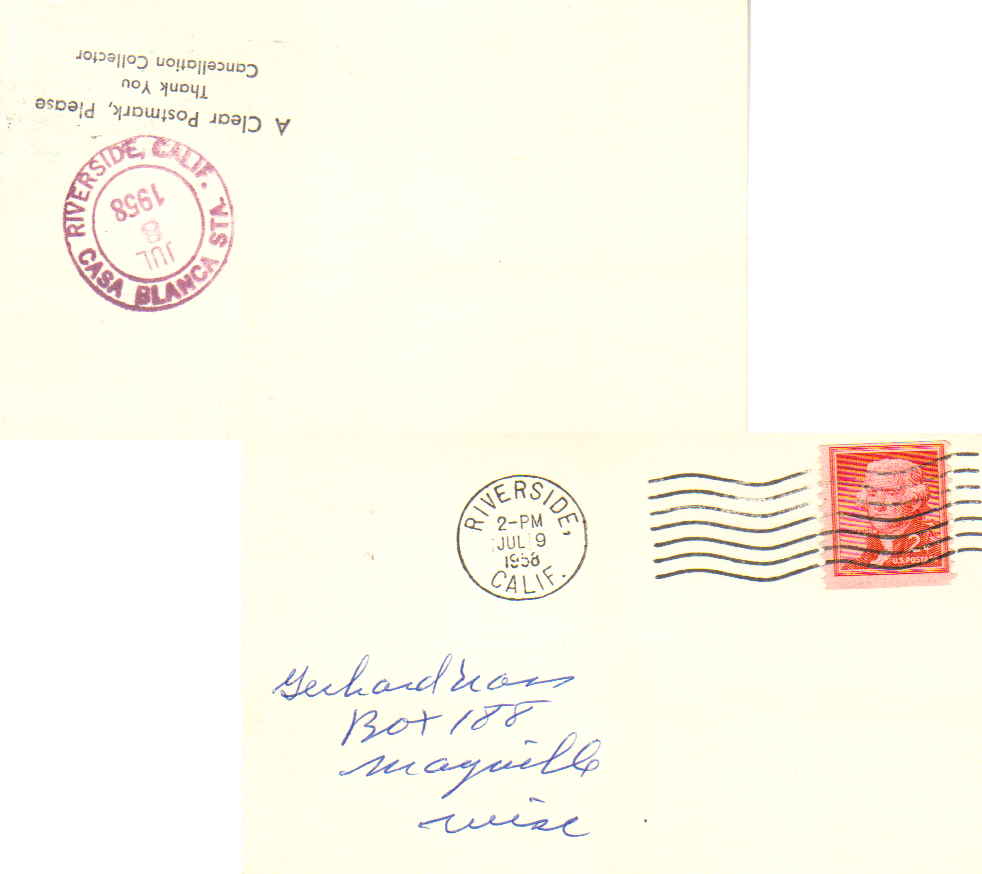 A Clear Postmark, Please
Thank You
Cancellation Collector
RIVERSIDE, CALIF.
JUL
8
1958
CASA BLANCA STA.
RIVERSIDE,
2-PM
JUL 9
1958
CALIF.
2¢
U.S. POSTAGE
Gerhard
Box 188
Mayville
Wisc